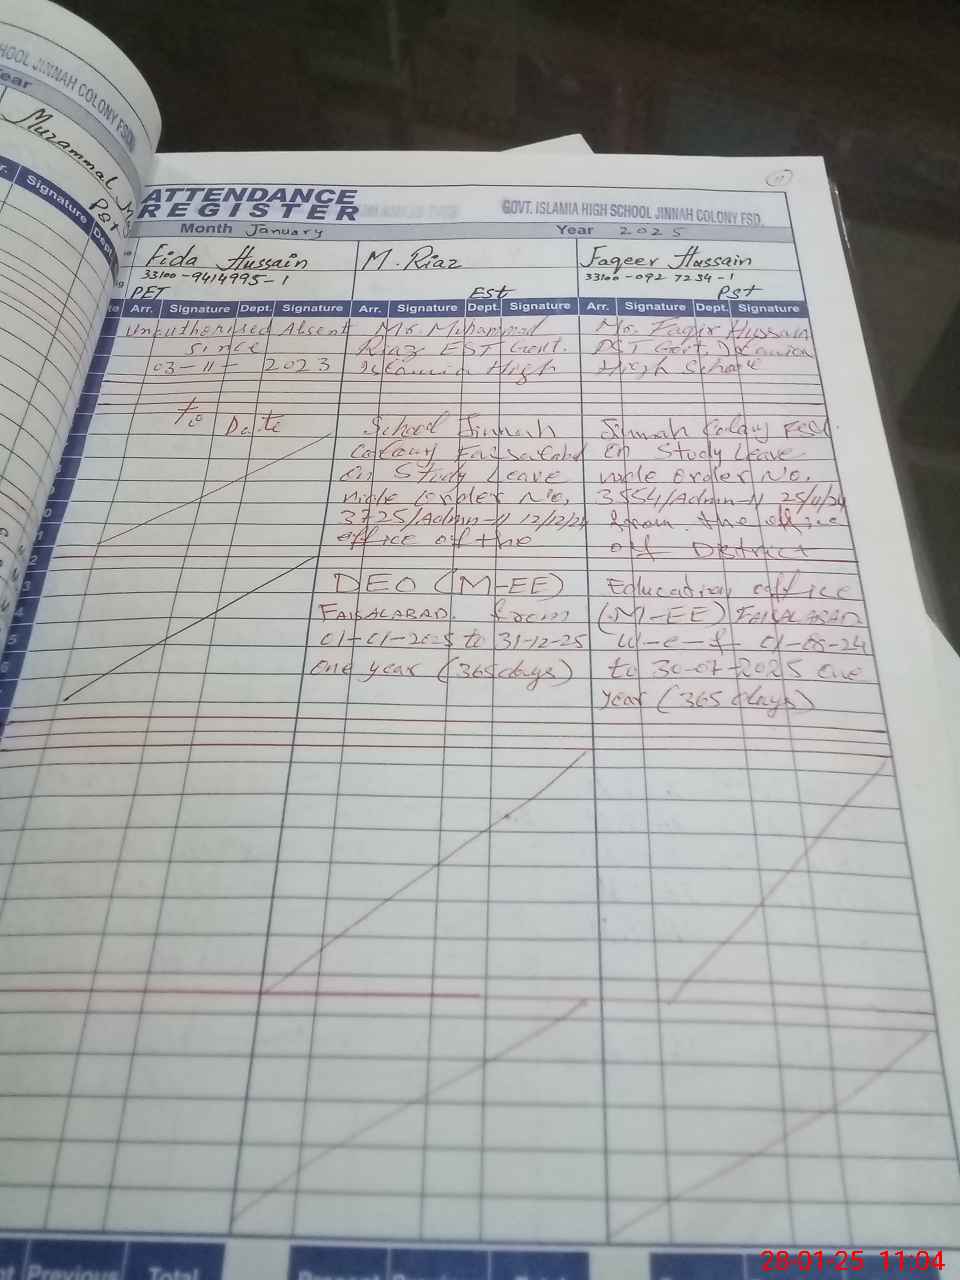 HOOL JINNAH COLONY FSD
ear
Muzammal
PST
r. Signature Dept.
11
ATTENDANCE
REGISTER
GOVT. ISLAMIA HIGH SCHOOL JINNAH COLONY FSD.
Month January Year 2025
Fida Hussain
33100-9414995-1
PET
M. Riaz
EST
Faqeer Hussain
33100-092 7234-1
PST
Arr. Signature Dept. Signature Arr. Signature Dept. Signature Arr. Signature Dept. Signature
Unauthorised Absent
since
03-11-2023
to Date
Mr. Muhammad
Riaz EST Govt.
Islamia High
School Jinnah
Colony Faisalabad
on Study Leave
vide order No.
3725/Admn-II 12/12/24
office of the
DEO (M-EE)
FAISALABAD. from
01-01-2025 to 31-12-25
one year (365 days)
Mr. Faqir Hussain
PST Govt. Islamia
High School
Jinnah Colony FSD.
on Study Leave
vide order No.
3554/Admn-II 25/11/24
from the office
of District
Education office
(M-EE) FAISALABAD
w-e-f 01-08-24
to 30-07-2025 one
year (365 days)
nt Previous Total
28-01-25 11:04